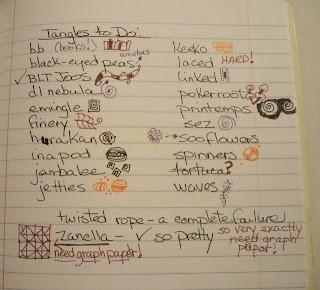 Tangles to Do:
bb (books!)
amebas
black-eyed peas
✓ BLT JOOS
dl nebula
emingle
finery
hurakan
inapod
jambalee
jetties
keeko
laced HARD!
linked
pokerroot
printemps
sez
sooflowers
spinners
tortuca?
waves
twisted rope - a complete failure
Zanella - ✓ so pretty
need graph paper!
so very exactly
need graph
paper!